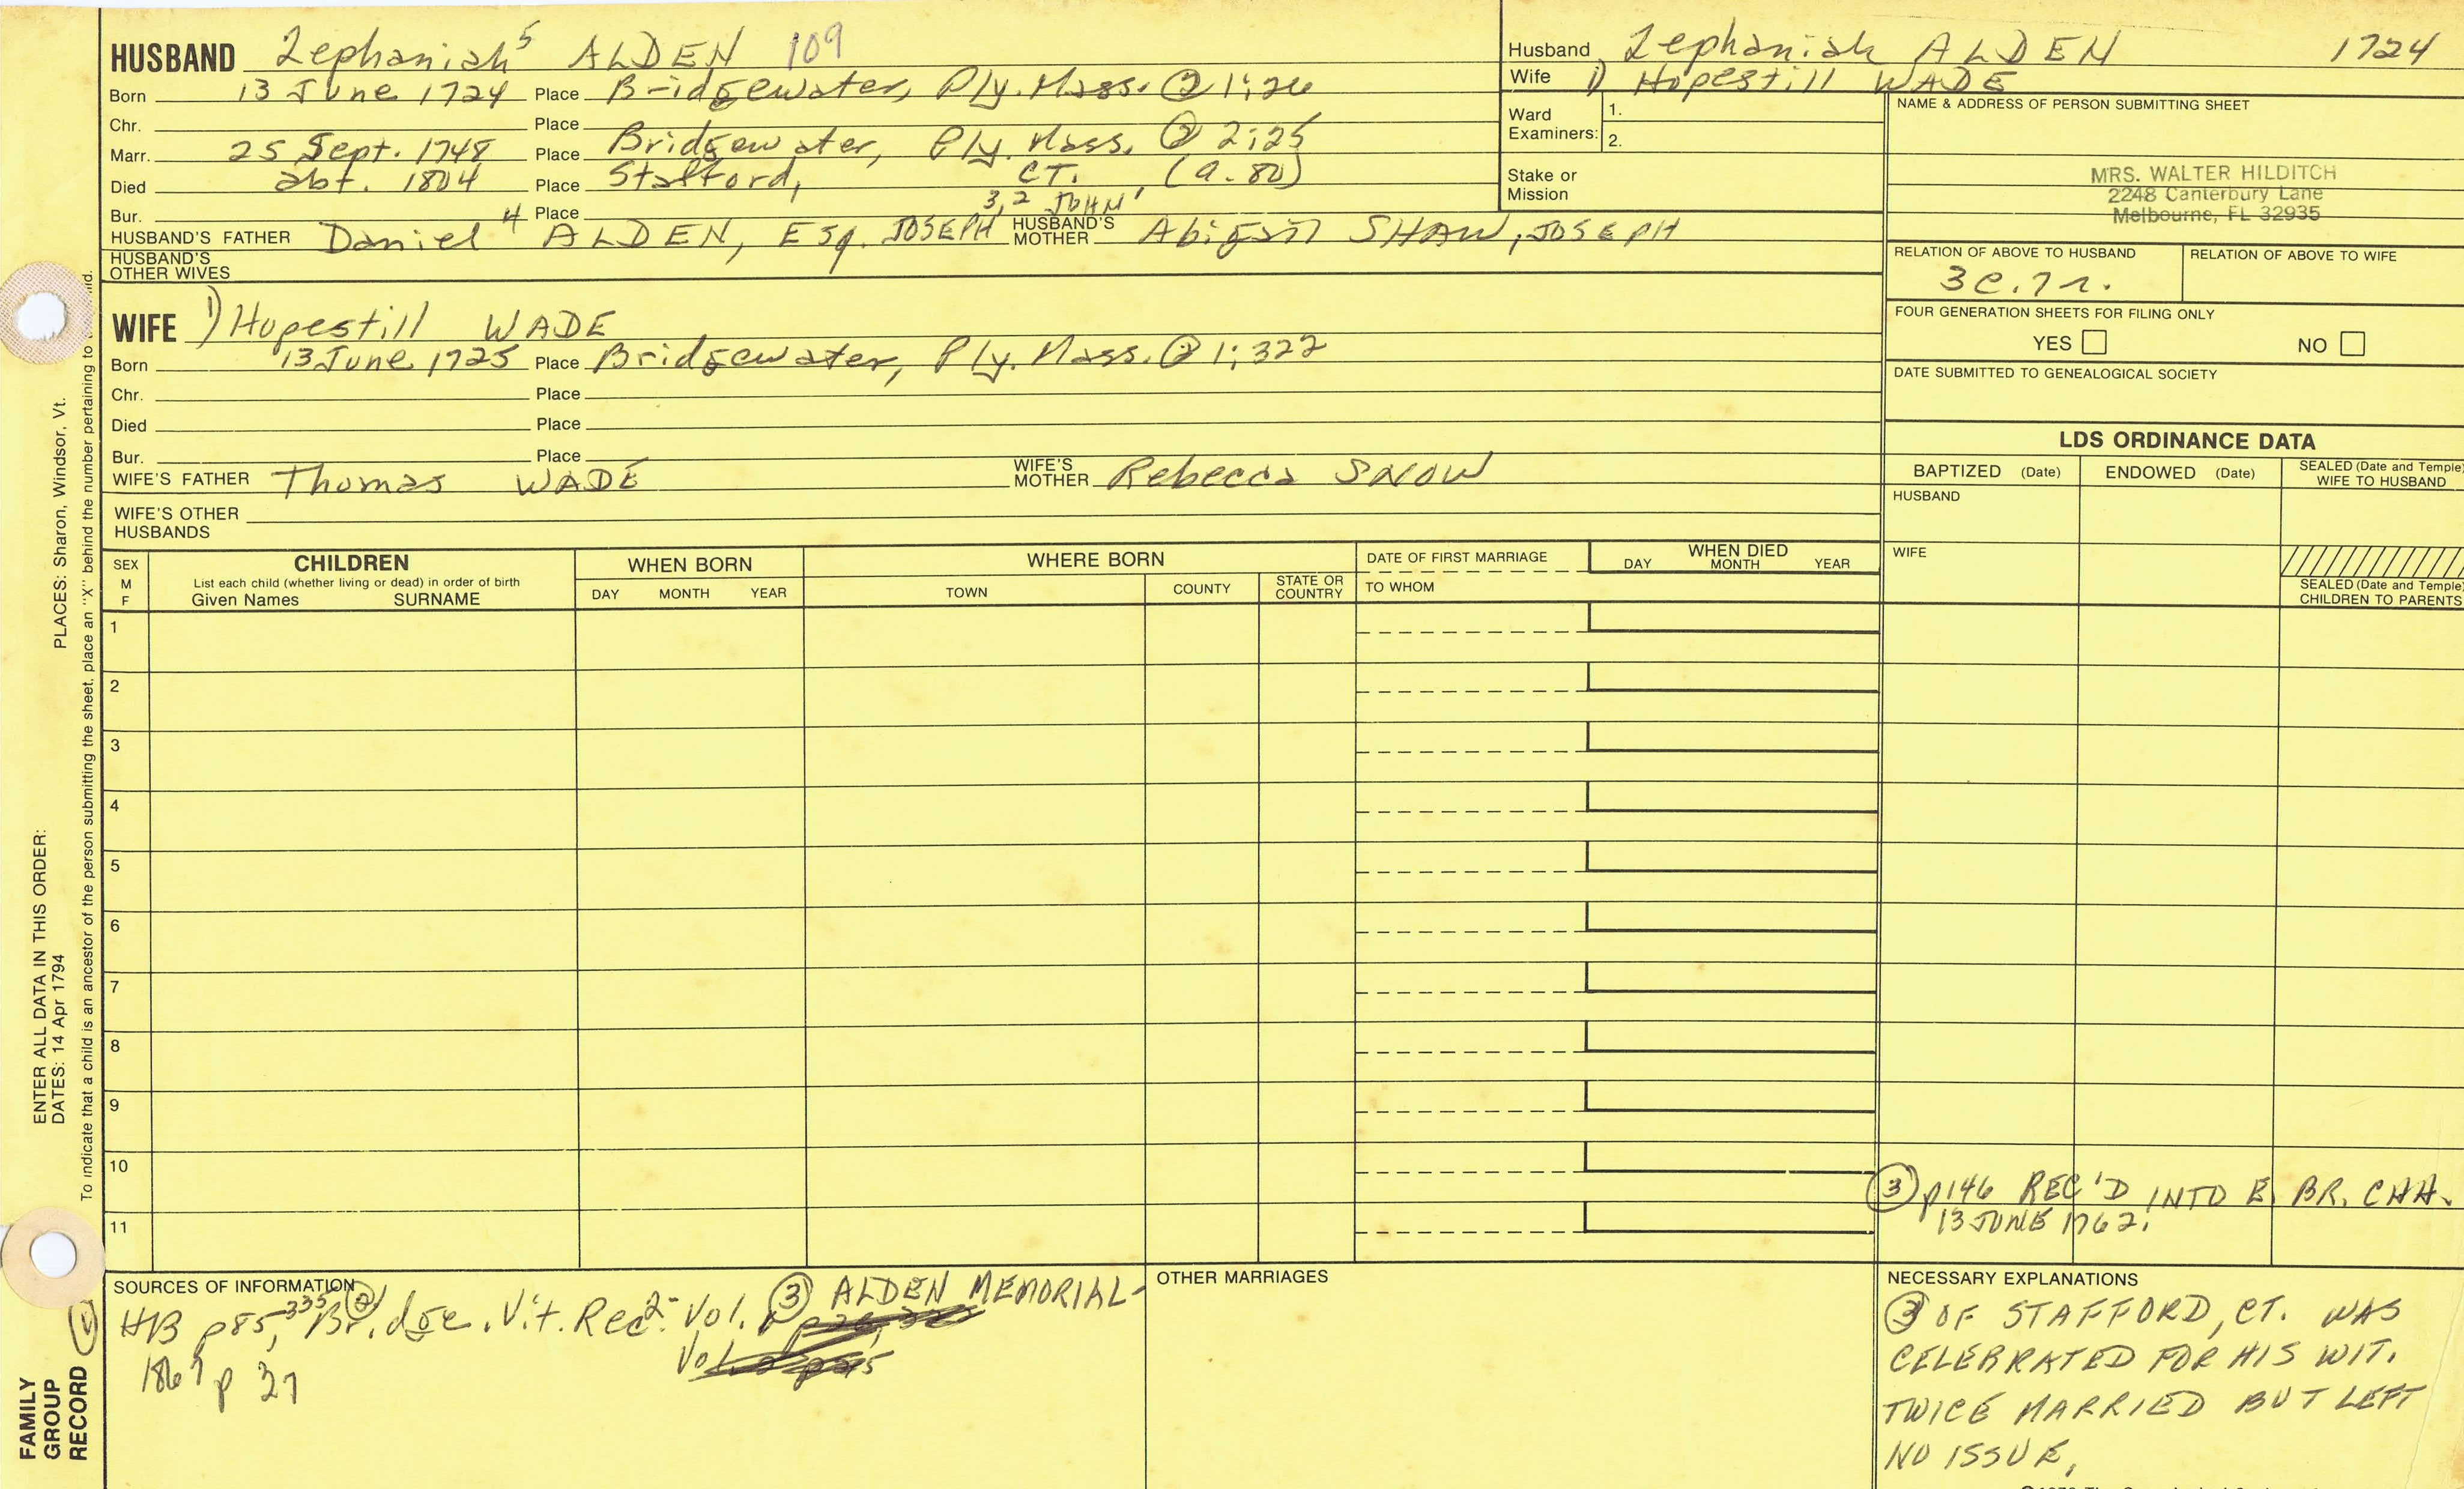 HUSBAND Zephaniah⁵ ALDEN 109
Born 13 June 1724 Place Bridgewater, Ply. Mass. ② 1:26
Chr. Place
Marr. 25 Sept. 1748 Place Bridgewater, Ply. Mass. ② 2:25
Died abt. 1804 Place Stafford, CT. (a. 80)
Bur. Place
3,2 JOHN¹
HUSBAND'S FATHER Daniel⁴ ALDEN, Esq. JOSEPH HUSBAND'S MOTHER Abigail SHAW, JOSEPH
HUSBAND'S OTHER WIVES
WIFE 1) Hopestill WADE
Born 13 June 1725 Place Bridgewater, Ply. Mass. ② 1:322
Chr. Place
Died Place
Bur. Place
WIFE'S FATHER Thomas WADE WIFE'S MOTHER Rebecca SNOW
WIFE'S OTHER HUSBANDS
Husband Zephaniah ALDEN 1724
Wife 1) Hopestill WADE
Ward Examiners: 1.
2.
Stake or Mission
NAME & ADDRESS OF PERSON SUBMITTING SHEET
MRS. WALTER HILDITCH
2248 Canterbury Lane
Melbourne, FL 32935
RELATION OF ABOVE TO HUSBAND RELATION OF ABOVE TO WIFE
3c.7r.
FOUR GENERATION SHEETS FOR FILING ONLY
YES NO
DATE SUBMITTED TO GENEALOGICAL SOCIETY
LDS ORDINANCE DATA
BAPTIZED (Date) ENDOWED (Date) SEALED (Date and Temple) WIFE TO HUSBAND
HUSBAND
WIFE
SEALED (Date and Temple) CHILDREN TO PARENTS
SEX M F
CHILDREN
List each child (whether living or dead) in order of birth
Given Names SURNAME
WHEN BORN
DAY MONTH YEAR
WHERE BORN
TOWN COUNTY STATE OR COUNTRY
DATE OF FIRST MARRIAGE
TO WHOM
WHEN DIED
DAY MONTH YEAR
1
2
3
4
5
6
7
8
9
10
11
③ p146 REC'D INTO E. BR. CHH.
13 JUNE 1762.
SOURCES OF INFORMATION
HB p85, 335 ② Bridge. Vit. Rec. 2- Vol. ③ ALDEN MEMORIAL-
Vol.
1867 p 27
OTHER MARRIAGES
NECESSARY EXPLANATIONS
③ OF STAFFORD, CT. WAS
CELEBRATED FOR HIS WIT.
TWICE MARRIED BUT LEFT
NO ISSUE.
ENTER ALL DATA IN THIS ORDER:
DATES: 14 Apr 1794
PLACES: Sharon, Windsor, Vt.
To indicate that a child is an ancestor of the person submitting the sheet, place an "X" behind the number pertaining to
FAMILY
GROUP
RECORD